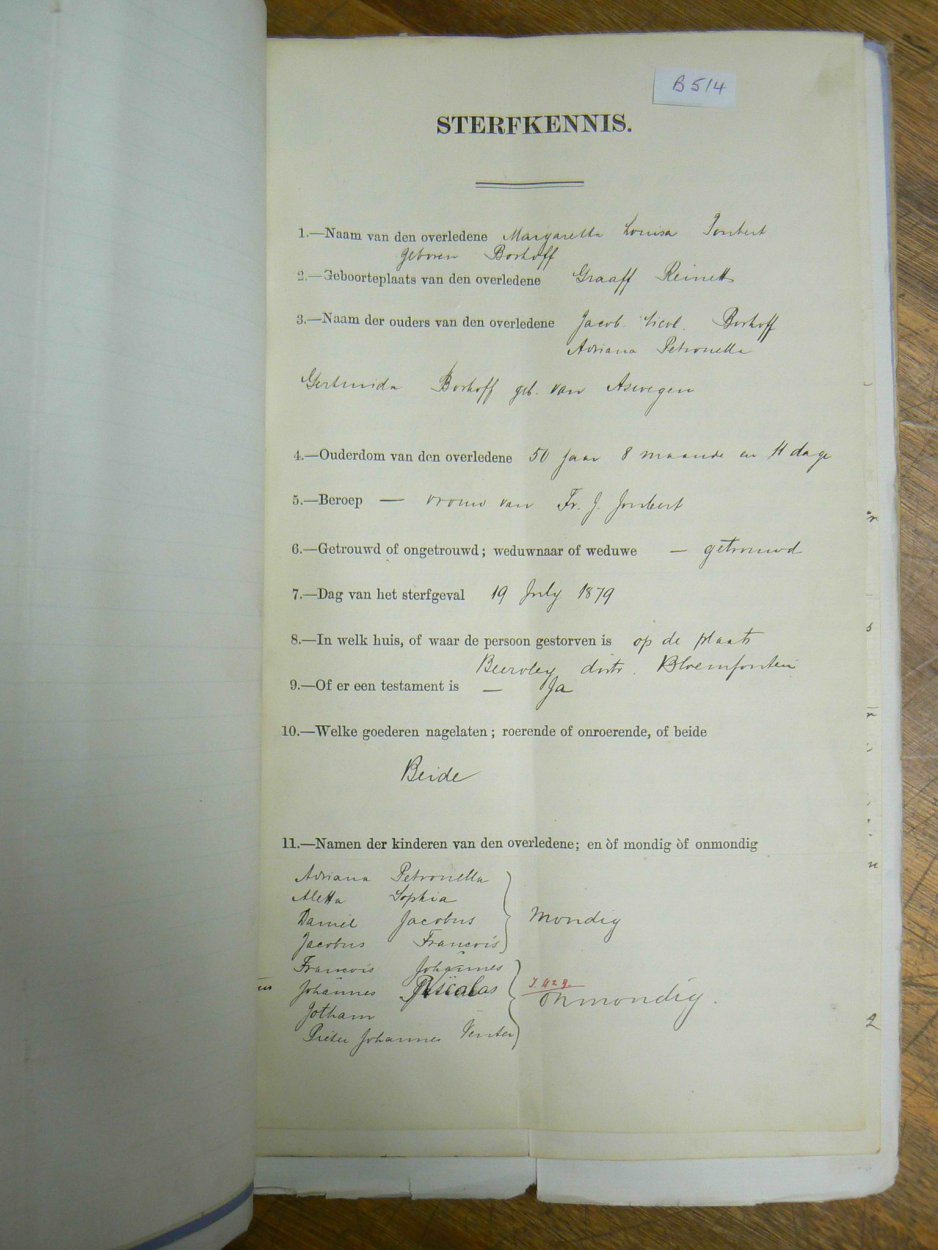 B 514
STERFKENNIS.
1.—Naam van den overledene Margaretha Louisa Joubert
geboren Boshoff
2.—Geboorteplaats van den overledene Graaff Reinett
3.—Naam der ouders van den overledene Jacob Nicol. Boshoff
Adriana Petronella
Gertruida Boshoff geb. van Aswegen
4.—Ouderdom van den overledene 50 jaar 8 maande en 11 dage
5.—Beroep — vrouw van Fr. J. Joubert
6.—Getrouwd of ongetrouwd; weduwnaar of weduwe — getrouwd
7.—Dag van het sterfgeval 19 July 1879
8.—In welk huis, of waar de persoon gestorven is op de plaats
distr. Bloemfontein
9.—Of er een testament is — Ja
10.—Welke goederen nagelaten; roerende of onroerende, of beide
Beide
11.—Namen der kinderen van den overledene; en òf mondig òf onmondig
Adriana Petronella
Aletta Sophia
Daniel Jacobus Mondig
Jacobus Francois
Francois Johannes
Johannes Onmondig.
Jotham
Pieter Johannes Venter